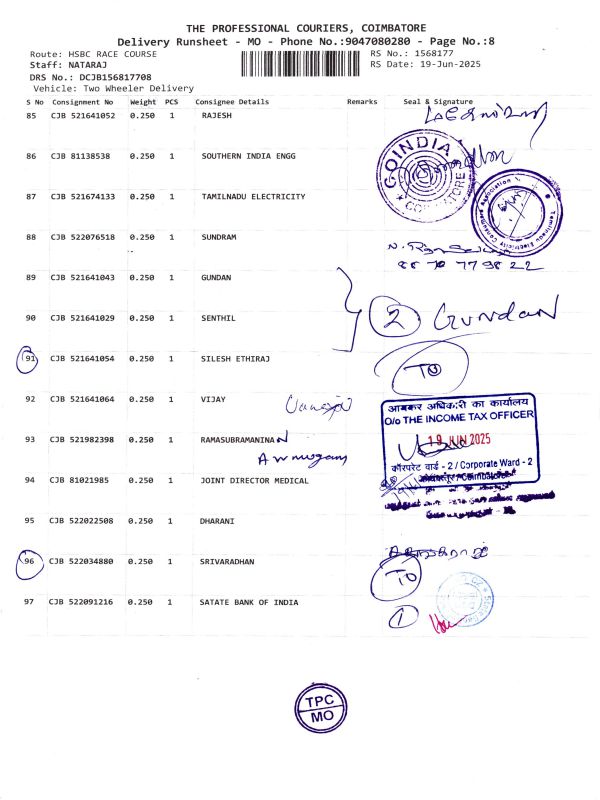 THE PROFESSIONAL COURIERS, COIMBATORE
Delivery Runsheet - MO - Phone No.:9047080280 - Page No.:8
Route: HSBC RACE COURSE
RS No.: 1568177
Staff: NATARAJ
RS Date: 19-Jun-2025
DRS No.: DCJB156817708
Vehicle: Two Wheeler Delivery
S No Consignment No Weight PCS Consignee Details Remarks Seal & Signature
85 CJB 521641052 0.250 1 RAJESH
86 CJB 81138538 0.250 1 SOUTHERN INDIA ENGG
GOINDIA
COIMBATORE
87 CJB 521674133 0.250 1 TAMILNADU ELECTRICITY
Tamilnadu Electricity Consumers Association
88 CJB 522076518 0.250 1 SUNDRAM
88 70 779822
89 CJB 521641043 0.250 1 GUNDAN
90 CJB 521641029 0.250 1 SENTHIL
2 Gundan
91 CJB 521641054 0.250 1 SILESH ETHIRAJ
TO
92 CJB 521641064 0.250 1 VIJAY
आयकर अधिकारी का कार्यालय
O/o THE INCOME TAX OFFICER
19 JUN 2025
कॉरपरेट वार्ड - 2 / Corporate Ward - 2
कोयम्बत्तूर / Coimbatore
93 CJB 521982398 0.250 1 RAMASUBRAMANINAN
Awmugam
94 CJB 81021985 0.250 1 JOINT DIRECTOR MEDICAL
95 CJB 522022508 0.250 1 DHARANI
96 CJB 522034880 0.250 1 SRIVARADHAN
TO
97 CJB 522091216 0.250 1 SATATE BANK OF INDIA
1
TPC
MO